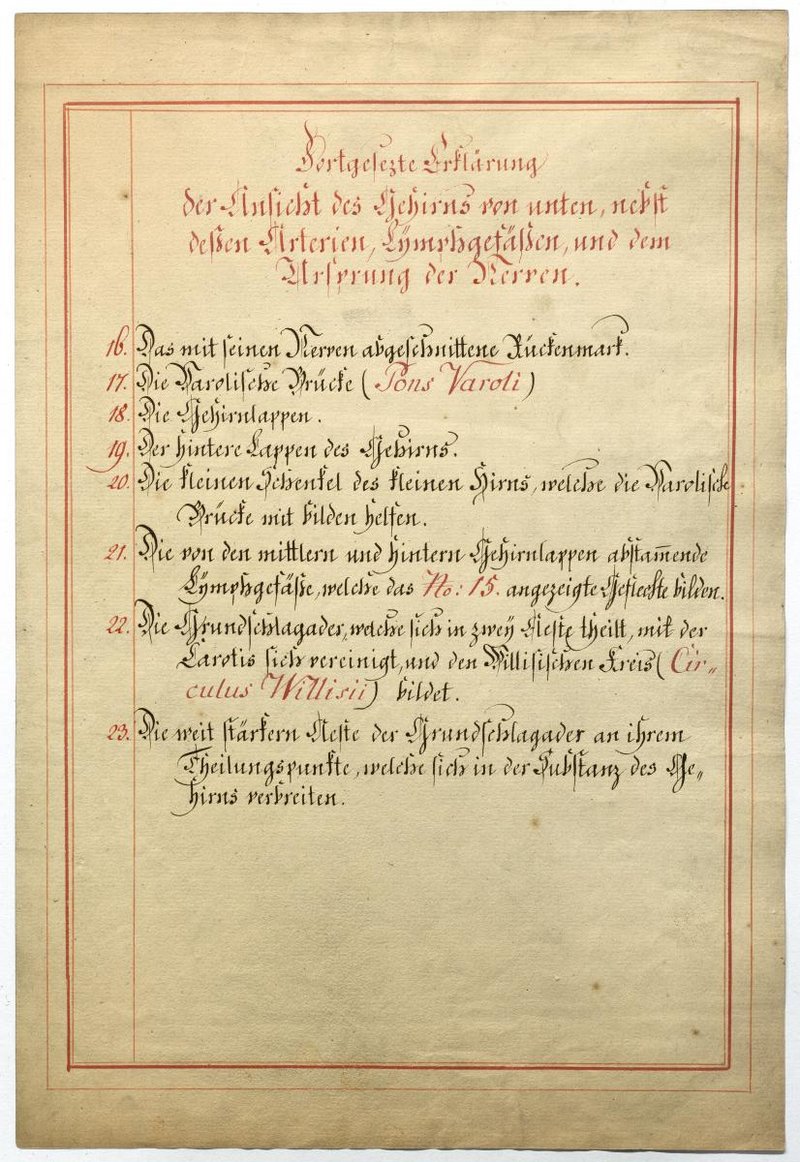 Fortgesezte Erklärung
der Ansicht des Gehirns von unten, nebst
deßen Arterien, Lÿmphgefäßen, und dem
Ursprung der Nerven.
16. Das mit seinen Nerven abgeschnittene Rückenmark.
17. Die Varolische Brücke (Pons Varoli)
18. Die Gehirnlappen.
19. Der hintere Lappen des Gehirns.
20. Die kleinen Schenkel des kleinen Hirns, welche die Varolische
Brücke mit bilden helfen.
21. Die von den mittlern und hintern Gehirnlappen abstam̄ende
Lÿmphgefäße, welche das No: 15. angezeigte Geflechte bilden.
22. Die Grundschlagader, welche sich in zweÿ Aeste theilt, mit der
Carotis sich vereinigt, und den Willisischen Kreis (Cir„
culus Willisii) bildet.
23. Die weit stärkern Aeste der Grundschlagader an ihrem
Theilungspunkte, welche sich in der Substanz des Ge„
hirns verbreiten.